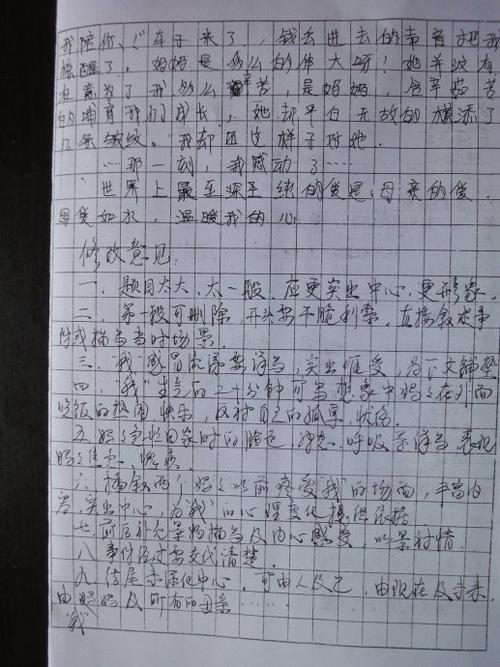 我陪你。”车子来了，钱丢进去的声音把我
惊醒了，妈妈是多么的伟大呀！她并没有
在意为了我多么辛苦，是妈妈，含辛茹苦
的哺育我们成长，她却平白无故的横添了
几条皱纹。我却还这样子对她。
……那一刻，我感动了……
世界上最至深至纯的爱是：母亲的爱。
母爱如水，温暖我的心。
修改意见：
一、题目太大、太一般。应更突出中心，更形象。
二、第一段可删除，开头要干脆利索，直接叙述事
件或描写当时场景。
三、“我”感冒流涕要详写，突出难受，为下文铺垫
四、“我”生气的二十分钟可写想象中妈妈在外面
吃饭的热闹、快乐，反衬自己的孤单、忧伤
五、妈妈匆忙回家时的脸色、神态、呼吸等详写，表现
妈妈焦急、愧疚
六、插叙两个妈妈以前疼爱“我”的场面，丰富内
容，突出中心，为“我”的心理变化提供依据
七、前后补充景物描写及内心感受，以景衬情
八、事件经过要交代清楚。
九、结尾要深化中心。可由人及己，由现在及未来
由妈妈及所有的母亲……
“我”